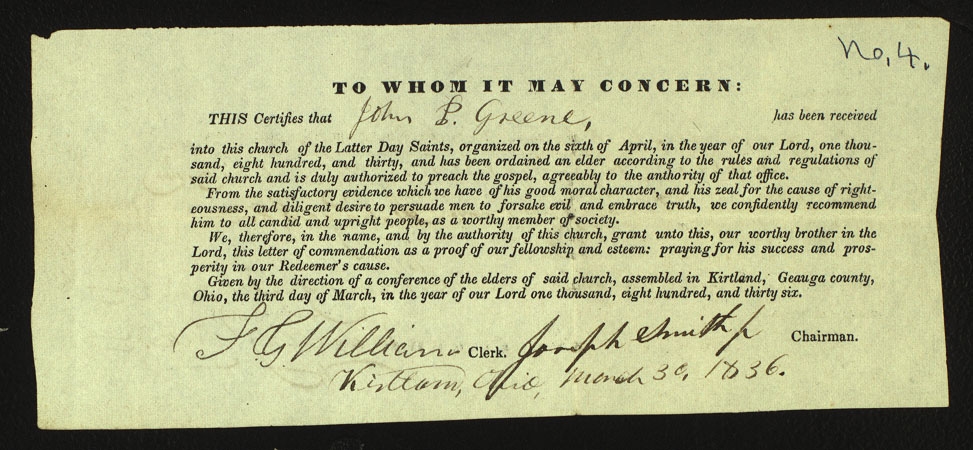 No, 4.
TO WHOM IT MAY CONCERN:
THIS Certifies that John P. Greene, has been received
into this church of the Latter Day Saints, organized on the sixth of April, in the year of our Lord, one thou-
sand, eight hundred, and thirty, and has been ordained an elder according to the rules and regulations of
said church and is duly authorized to preach the gospel, agreeably to the anthority of that office.
From the satisfactory evidence which we have of his good moral character, and his zeal for the cause of right-
eousness, and diligent desire to persuade men to forsake evil and embrace truth, we confidently recommend
him to all candid and upright people, as a worthy member of society.
We, therefore, in the name, and by the authority of this church, grant unto this, our worthy brother in the
Lord, this letter of commendation as a proof of our fellowship and esteem: praying for his success and pros-
perity in our Redeemer's cause.
Given by the direction of a conference of the elders of said church, assembled in Kirtland, Geauga county,
Ohio, the third day of March, in the year of our Lord one thousand, eight hundred, and thirty six.
F G Williams Clerk. Joseph Smith jr Chairman.
Ohio, March 30, 1836.